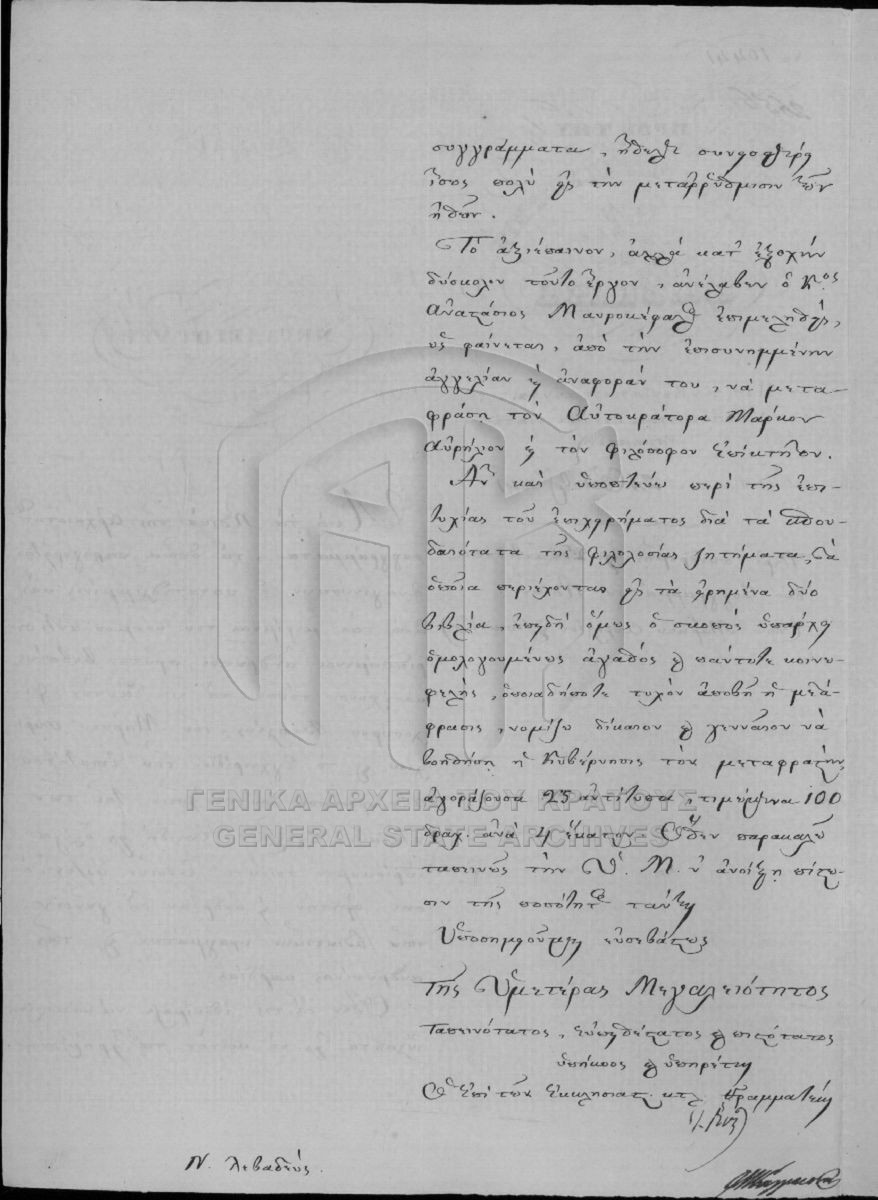 συγγράμματα, ἤθελε συνεισφέρῃ
ἴσως πολὺ εἰς τὴν μεταῤῥύθμισιν τῶν
ἠθῶν.
Τὸ ἀξιέπαινον, ἀλλὰ κατ' ἐξοχὴν
δύσκολον τοῦτο ἔργον, ἀνέλαβεν ὁ Κος
Ἀναστάσιος Μαυροκέφαλος ἐπιμεληθεὶς,
ὡς φαίνεται, ἀπὸ τὴν ἐπισυνημμένην
ἀγγελίαν καὶ ἀναφοράν του, νὰ μετα-
φράσῃ τὸν Αὐτοκράτορα Μάρκον
Αὐρήλιον καὶ τὸν φιλόσοφον Ἐπίκτητον.
Ἂν καὶ ὑποπτεύω περὶ τῆς ἐπι-
τυχίας τοῦ ἐπιχειρήματος διὰ τὰ σπου-
δαιότατα τῆς φιλολοσίας ζητήματα, τὰ
ὁποῖα περιέχονται εἰς τὰ εἰρημένα δύο
βιβλία, ἐπειδὴ ὅμως ὁ σκοπὸς ὑπάρχει
ὁμολογουμένως ἀγαθὸς καὶ πάντοτε κοινω-
φελής, ὁποιαδήποτε τυχὸν ἀποβῇ ἡ μετά-
φρασις, νομίζω δίκαιον καὶ γενναῖον νὰ
βοηθήσῃ ἡ Κυβέρνησις τὸν μεταφραστὴν,
ἀγοράζουσα 25 ἀντίτυπα, τιμώμενα 100
δραχ. ἀνὰ 4 ἕκαστον. Ὅθεν παρακαλῶ
ταπεινῶς τὴν Ὑ. Μ. ν' ἀνοίξῃ πίστω-
σιν τῆς ποσότητος ταύτης
Ὑποσημειούμαι εὐσεβάστως
Τῆς Ὑμετέρας Μεγαλειότητος
Ταπεινότατος, εὐπειθέστατος καὶ πιστότατος
ὑπήκοος καὶ ὑπηρέτης
Ὁ ἐπὶ τῶν Ἐκκλησιαστ. κτλ. Γραμματεὺς
Ν. Λεβαδεύς.
ΓΕΝΙΚΑ ΑΡΧΕΙΑ ΤΟΥ ΚΡΑΤΟΥΣ
GENERAL STATE ARCHIVES